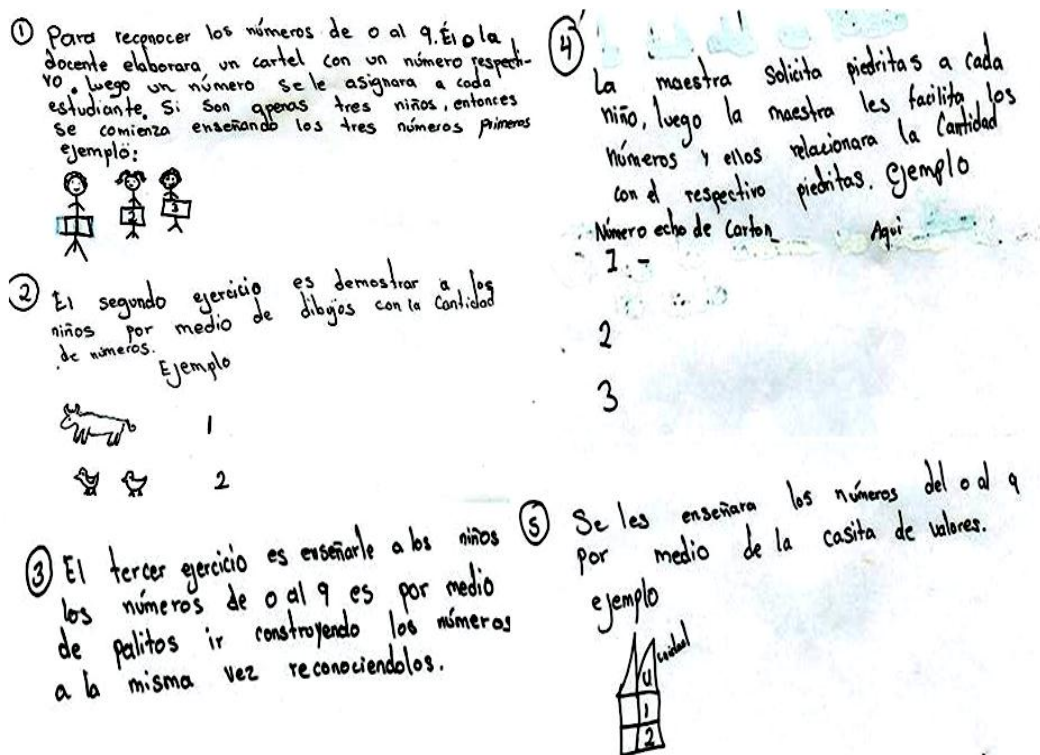 ① Para reconocer los números de 0 al 9. Él o la
docente elaborara un cartel con un número respecti-
vo. Luego un número se le asignara a cada
estudiante. Si son apenas tres niños, entonces
se comienza enseñando los tres números primeros
ejemplo:
1 2 3
② El segundo ejercicio es demostrar a los
niños por medio de dibujos con la cantidad
de números.
Ejemplo
1
2
③ El tercer ejercicio es enseñarle a los niños
los números de 0 al 9 es por medio
de palitos ir construyendo los números
a la misma vez reconociendolos.
④ La maestra solicita piedritas a cada
niño, luego la maestra les facilita los
números y ellos relacionara la cantidad
con el respectivo piedritas. Ejemplo
Número echo de Carton Aqui
1. -
2
3
⑤ Se les enseñara los números del 0 al 9
por medio de la casita de valores.
ejemplo
unidad
U
1
2